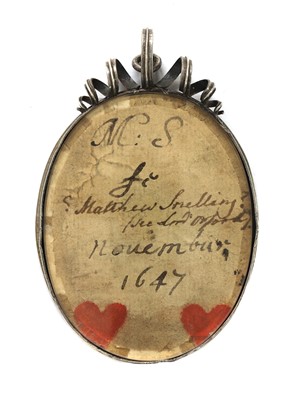 M: S
fc
Matthew Snelling
see Lord Orford
November
1647